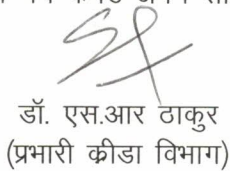 डॉ. एस.आर ठाकुर
(प्रभारी क्रीडा विभाग)